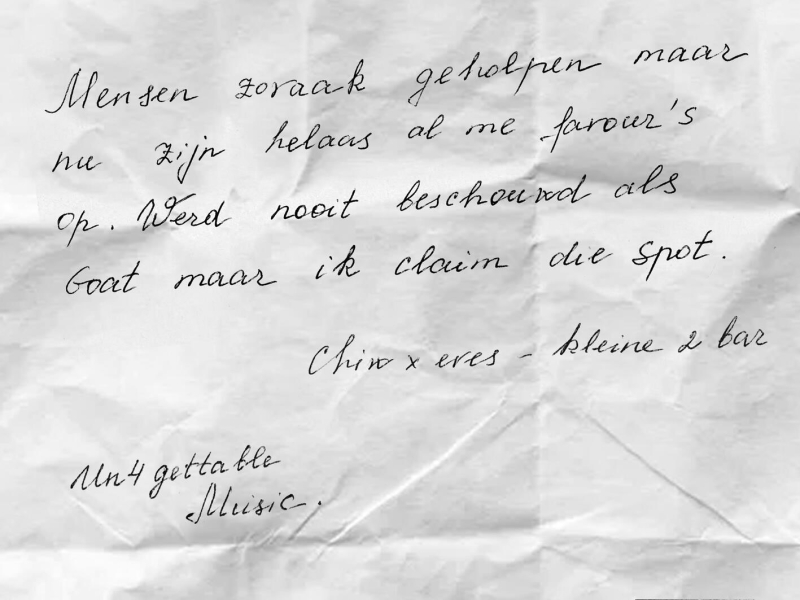 Mensen zovaak geholpen maar
nu zijn helaas al me favour's
op. Werd nooit beschouwd als
Goat maar ik claim die spot.
Chivv x eves - kleine 2 bar
Un4gettable
Music.